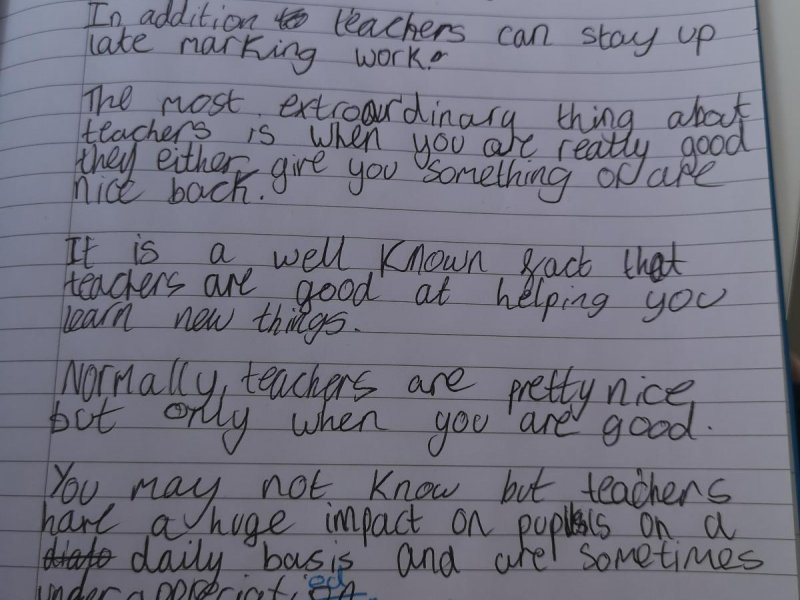 In addition to teachers can stay up
late marking work.
The most extraordinary thing about
teachers is when you are really good
they either give you something or are
nice back.
It is a well known fact that
teachers are good at helping you
learn new things.
Normally, teachers are pretty nice
but only when you are good.
You may not know but teachers
have a huge impact on pupils on a
daily basis and are sometimes